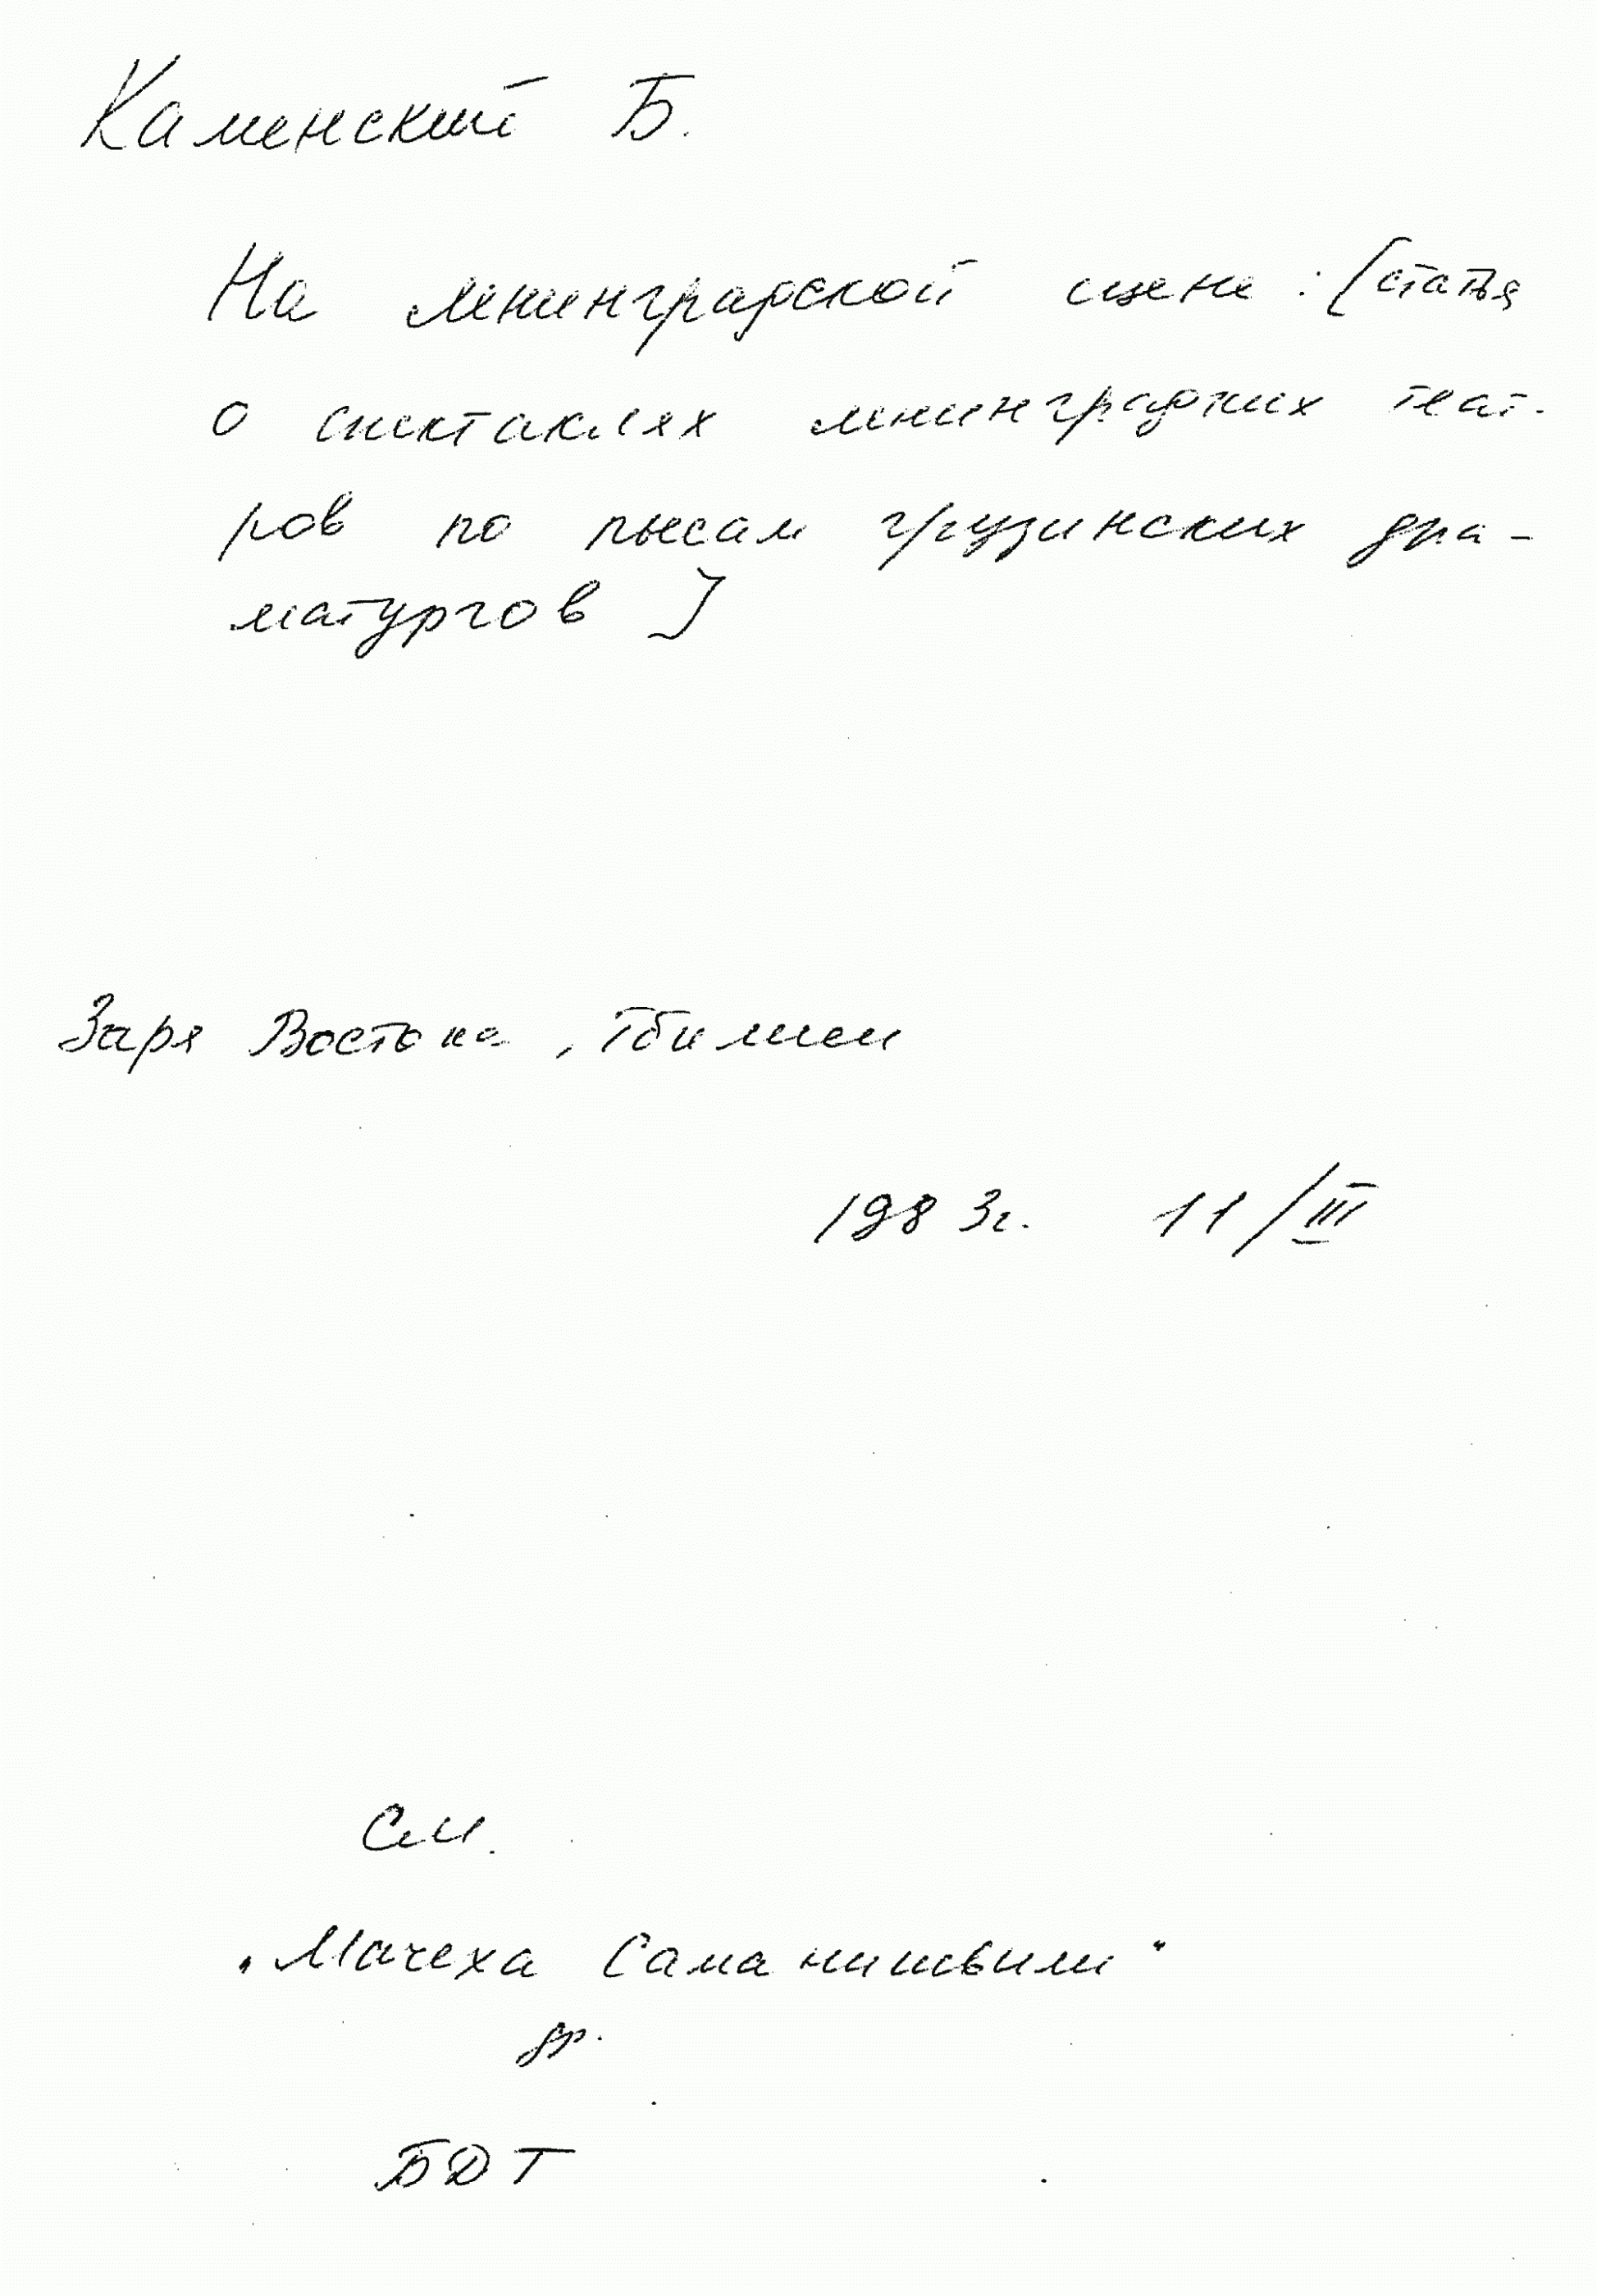 Каменский Б.
На ленинградской сцене : [статья
о спектаклях ленинградских теат-
ров по пьесам грузинских дра-
матургов]
Заря Востока, Тбилиси
1983г. 11/III
См.
„Мачеха Саманишвили"
др.
БДТ